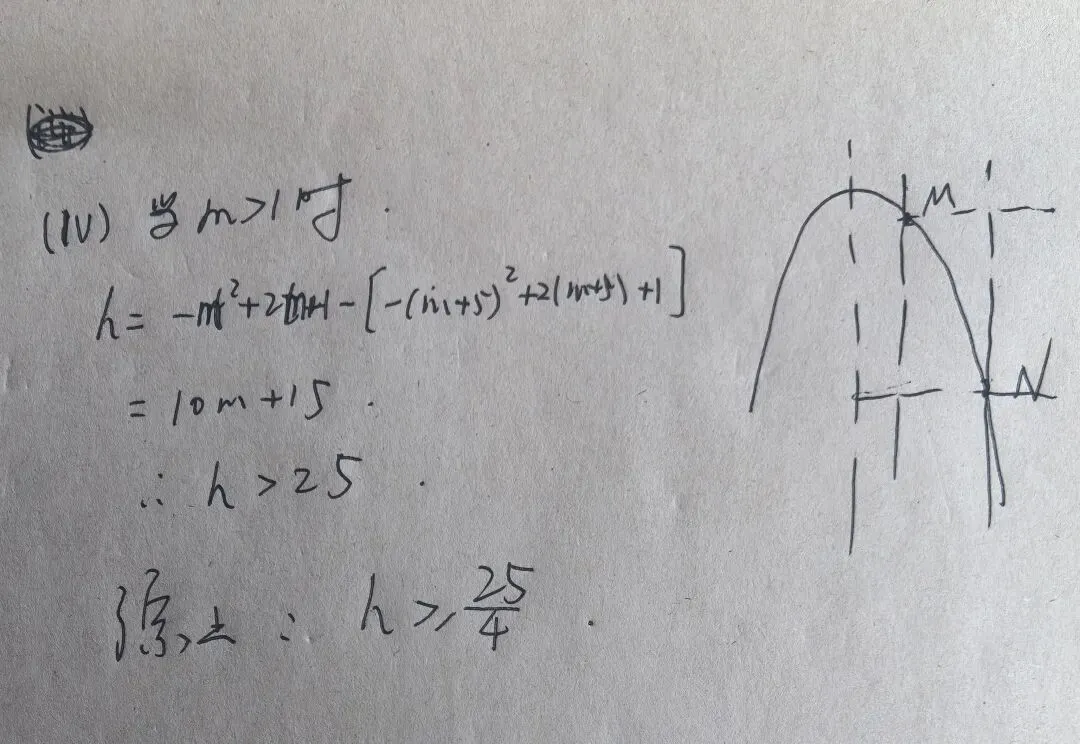 (IV) 当 m>1时.
h= -m²+2m+1-[-(m+5)²+2(m+5)+1]
= 10m+15.
∴ h>25.
综上: h≥25/4.
M
N